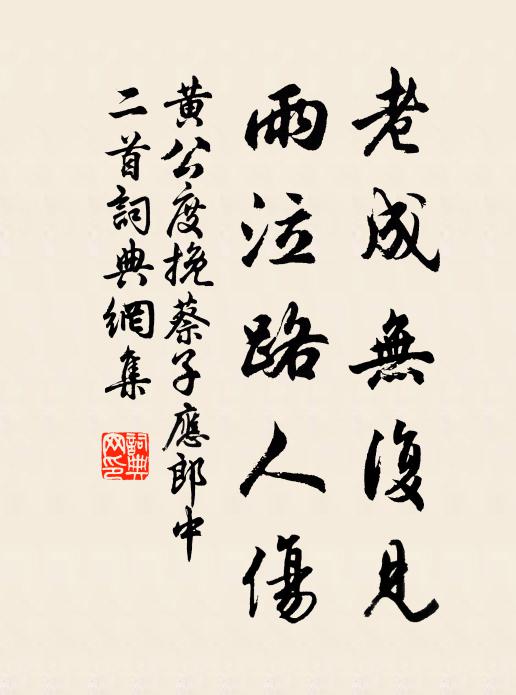 老成無復見
雨泣路人傷
黃公度挽蔡子應郎中
二首詞典網集
詞典
网印